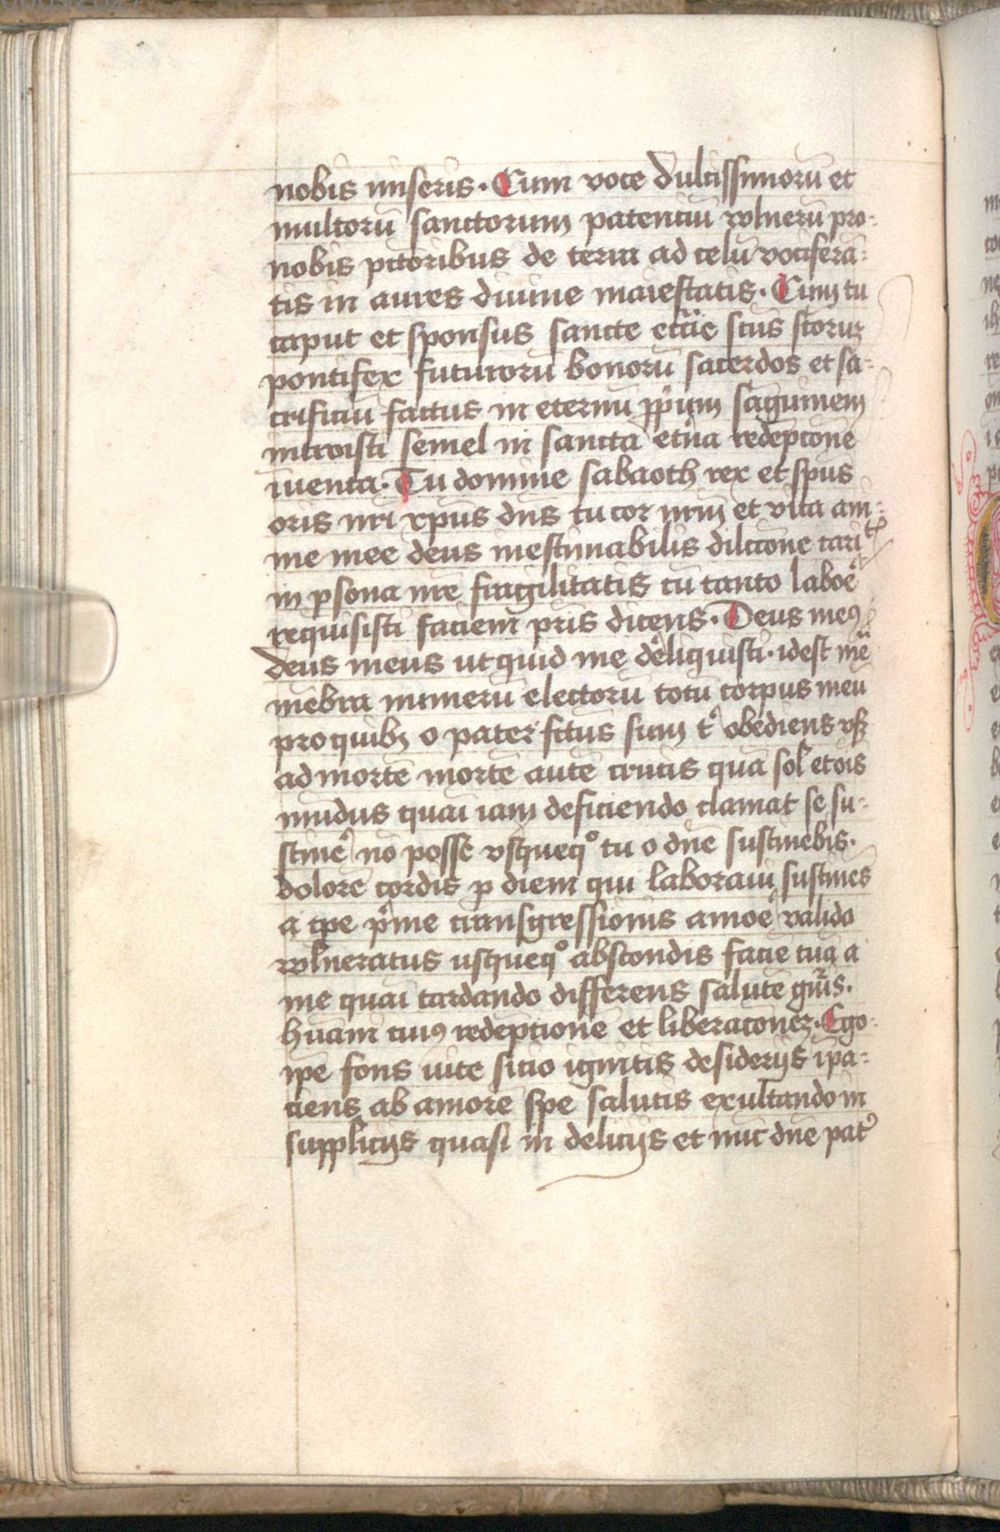 nobis miseris. Cum voce dulcissimorū et
multorū sanctorum patenciū vulnerū pro⸗
nobis pctoribus de terra ad celū vociferā⸗
tis in aures divine maiestatis. Cum tu
caput et sponsus sancte eccīe scūs scōrum
pontifex futurorū bonorū sacerdos et sa⸗
crificiū factus in eternū ꝓpriū sāguinem
introisti semel in sancta et̄na redēpcōne
inventa. Tu domine sabaoth rex et spūs
oris nr̄i xp̄us dn̄s tu cor nr̄m et vita aīm⸗
me mee deus inestimabilis dilcc̄one
in ꝑsona nr̄e fragilitatis cū tanto laboē
requisisti faciem pr̄is dicens. Deus meꝰ
deus meus ut quid me dēliquisti. idest mē
mēbra numerū electorū totū corpus meū
pro quibꝫ o pater fc̄tus sum t' obediens vsqꝫ
ad mortē mortē autē crucis quā sol et oīs
mūdus quasi iam deficiendo clamat se su⸗
stinē nō posse vsquequo tu o dn̄e sustinebis.
dolorē cordis ꝑ diem qui laboravi sustines
a tp̄e pⁱme transgressionis amoē valido
vulneratus usquequo abscondis faciē tuā a
me quasi tardando differens salutē gn̄is.
huam cuiꝰ redēptionē et liberacōnem. Ego
ip̄e fons vite sitio ignitis desiderijs īpa⸗
ciens ab amore spe salutis exultando in
supplicijs quasi in delicijs et nūc dn̄e pat᷒